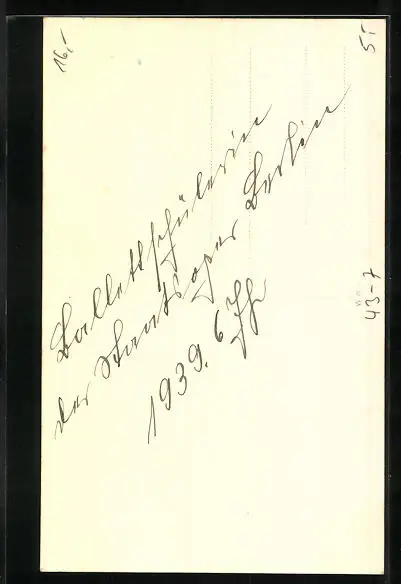 16,-
5,-
Ballettschülerin
der Staatsoper Berlin
1939. 6 Jh
43-7